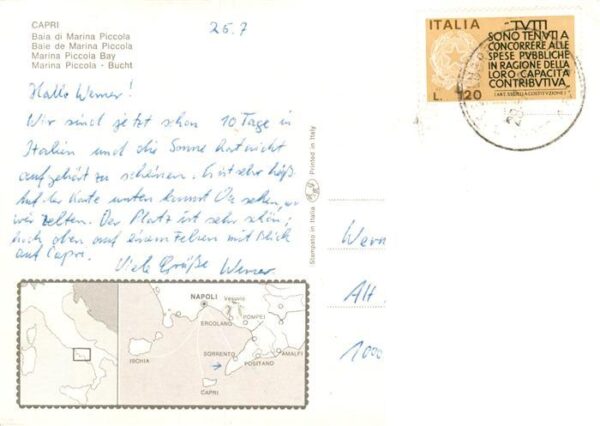 CAPRI
Baia di Marina Piccola
Baie de Marina Piccola
Marina Piccola Bay
Marina Piccola - Bucht
26.7
ITALIA
TUTTI
SONO TENUTI A
CONCORRERE ALLE
SPESE PUBBLICHE
IN RAGIONE DELLA
LORO CAPACITÀ
CONTRIBUTIVA
(ART. 53 DELLA COSTITUZIONE)
L. 120
Hallo Werner!
Wir sind jetzt schon 10 Tage in
Italien und die Sonne hat nicht
aufgehört zu scheinen. Es ist sehr heiß
Auf der Karte unten kannst Du sehen, wo
wir zelten. Der Platz ist sehr schön,
hoch oben auf einem Felsen mit Blick
auf Capri.
Viele Grüße Werner.
Stampato in Italia
Printed in Italy
Wern
Alt
1000
NAPOLI
Vesuvio
ERCOLANO
POMPEI
ISCHIA
SORRENTO
AMALFI
POSITANO
CAPRI